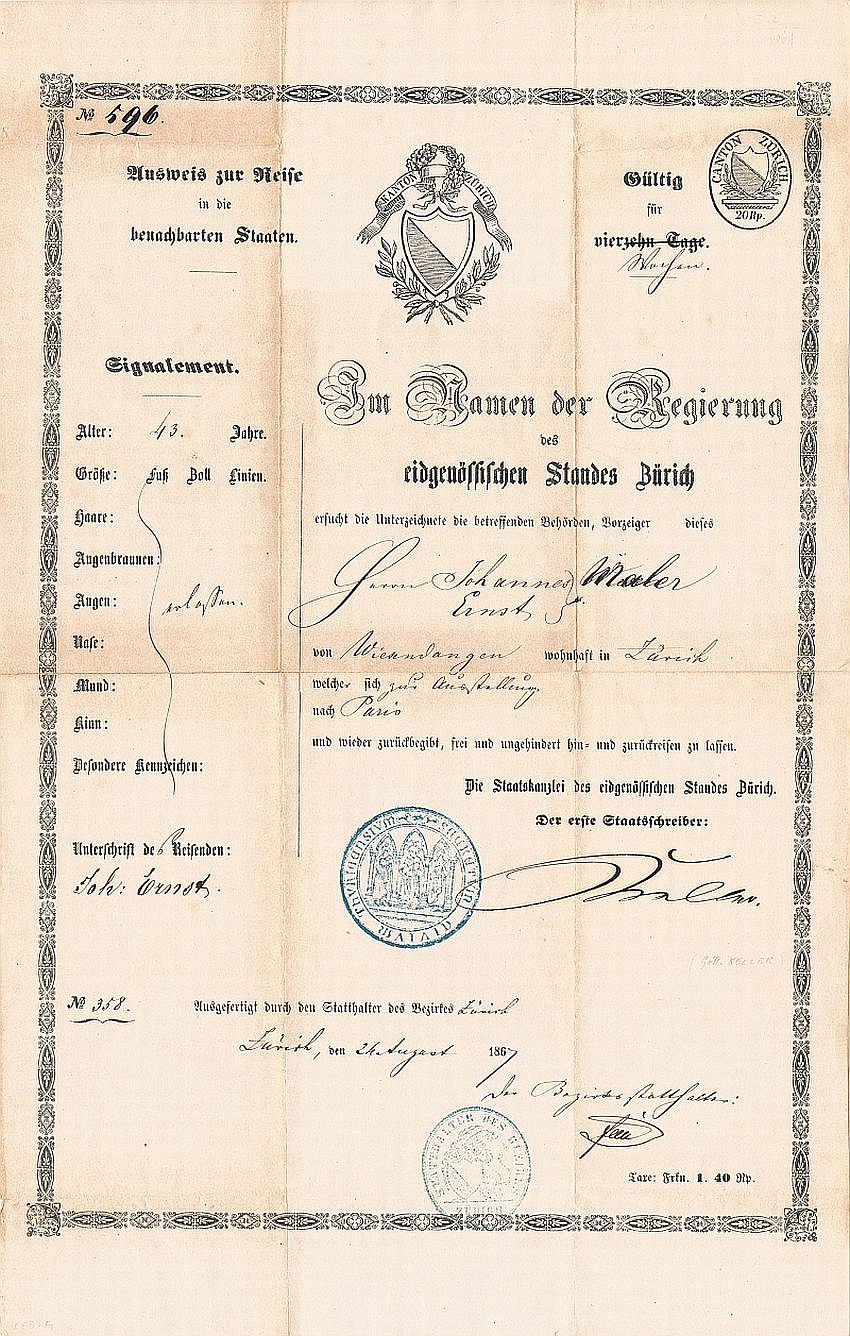 № 596.
Ausweis zur Reise
in die
benachbarten Staaten.
KANTON ZÜRICH
Gültig
für
vierzehn Tage.
Wochen.
CANTON ZÜRICH
20 Rp.
Signalement.
Alter: 43. Jahre.
Größe: Fuß Zoll Linien.
Haare:
Augenbraunen:
Augen: erlassen.
Nase:
Mund:
Kinn:
Besondere Kennzeichen:
Unterschrift des Reisenden:
Joh: Ernst.
Im Namen der Regierung
des
eidgenössischen Standes Zürich
ersucht die Unterzeichnete die betreffenden Behörden, Vorzeiger dieses
Herrn Johannes Maler
Ernst
von Wiesendangen wohnhaft in Zürich
welcher sich zur Ausstellung
nach Paris
und wieder zurückbegibt, frei und ungehindert hin- und zurückreisen zu lassen.
Die Staatskanzlei des eidgenössischen Standes Zürich.
Der erste Staatschreiber:
Keller.
Gottf. KELLER
№ 358.
Ausgefertigt durch den Statthalter des Bezirkes Zürich
Zürich, den 24. August 1867
Der Bezirksstatthalter:
STATTHALTER DES BEZIRKS
ZÜRICH
Taxe: Frkn. 1. 40 Rp.